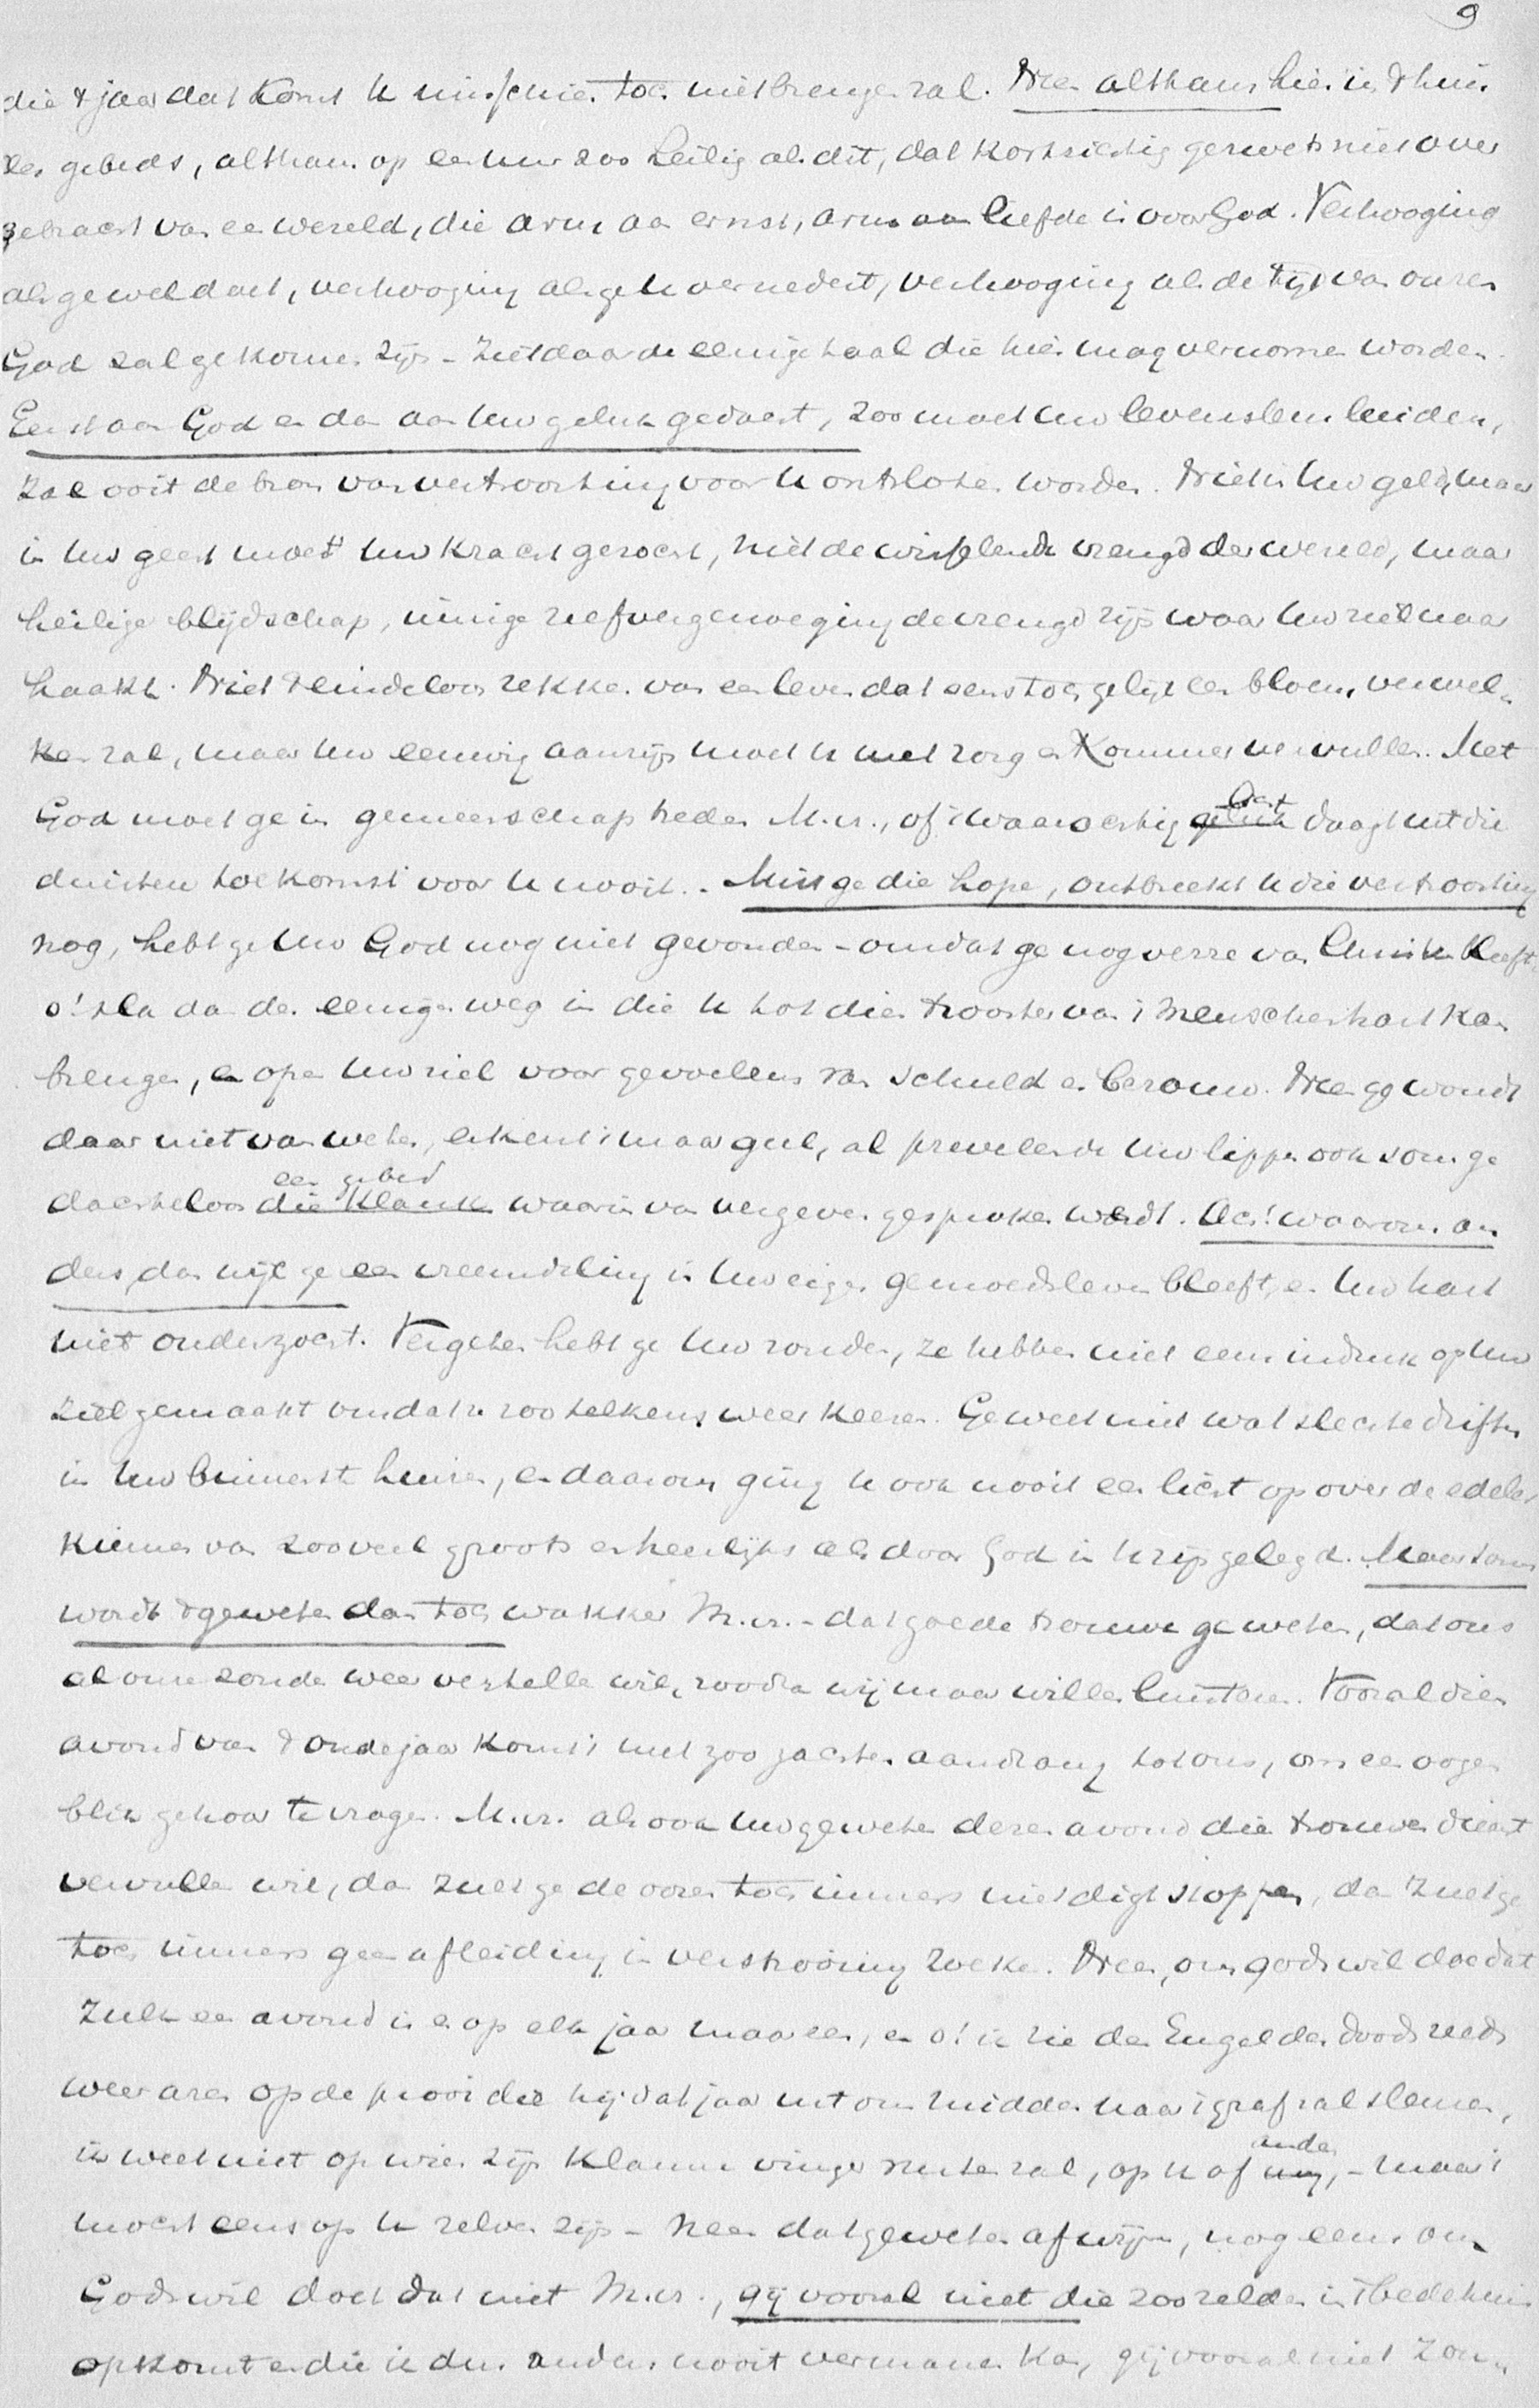 9
die 't jaar dat komt U misschien toch niet brengen zal. Neen althans hier in 't huis
des gebeds, althans op een uur zoo heilig als dit, dat kortzichtig gezwets niet over
gebracht van een wereld, die arm aan ernst, arm aan liefde is voor God. Verhooging
als ge wel doet, verhooging als ge U vernedert, verhooging als de tijd van onzen
God zal gekomen zijn – ziet daar de eenige taal die hier mag vernomen worden.
Eerst aan God en dan aan Uw geluk gedacht, zoo moet Uw levensleus luiden,
zal ooit de bron van vertroosting voor U ontsloten worden. Niet in Uw geld, maar
in Uw geest moet Uw kracht gezocht, niet de wisselende vreugd der wereld, maar
heilige blijdschap, innige zelfvergenoeging de vreugd zijn waar Uw ziel naar
haakt. Niet 't eindeloos rekken van een leven dat eens toch gelijk een bloem verwel-
ken zal, maar Uw eeuwig aanzijn moet U met zorg en kommer vervullen. Met
God moet ge in gemeenschap treden M.vr., of 't waarachtig geluk daagt uit die
duistere toekomst voor U nooit. – Mist ge die hope, ontbreekt U die vertroosting
nog, hebt ge Uw God nog niet gevonden – omdat ge nog verre van Christus bleeft
o! sla dan den eenigen weg in die U tot dien trooster van 't menschenhart kan
brengen, en open Uw ziel voor gevoelens van schuld en berouw. Neen gij wondt
daar niet van weten, erkent 't maar gul, al prevelende Uw lippen ook soms ge
een gebed
dachteloos die klank waarin van vergeven gesproken wordt. Ach! waarom an
ders, dan wijl ge een vreemdeling in Uw eigen gemoedsleven bleeft, en Uw hart
niet onderzocht. Vergeten hebt ge Uw zonden, ze hebben niet eens indruk op Uw
ziel gemaakt omdat ze zoo telkens weer keeren. Ge weet niet wat slechte driften
in Uw binnenst huizen, en daarom ging U ook nooit een licht op over de edele
kiemen van zooveel groots en heerlijks als door God in U zijn gelegd. Maar soms
wordt 't geweten dan toch wakker M.vr. – dat goede trouwe geweten, dat ons
al onze zonde weer vertellen wil, zoodra wij maar willen luisteren. Vooral dien
avond van 't oude jaar komt 't met zoo zachten aandrang tot ons, om een oogen
blik gehoor te vragen. M.vr. als ook Uw geweten dezen avond dien trouwen dienst
vervullen wil, dan zult ge de ooren toch immers niet digt stoppen, dan zult ge
toch immers geen afleiding in verstrooiing zoeken. Neen, om Gods wil doe dat
zulk een avond is er op elk jaar maar een, en o! ik zie den Engel des doods reeds
weer azen op de prooi die hij dat jaar uit ons midden naar 't graf zal sleuren,
anderen
ik weet niet op wien zijn klamme vinger rusten zal, op U of mij, – maar 't
mocht eens op U zelven zijn – neen dat geweten afwijzen, nog eens om
Gods wil doet dat niet M.vr., gij vooral niet die zoo zelden in 't bedehuis
opkomt en die ik dus anders nooit vermanen kan, gij vooral niet zon-